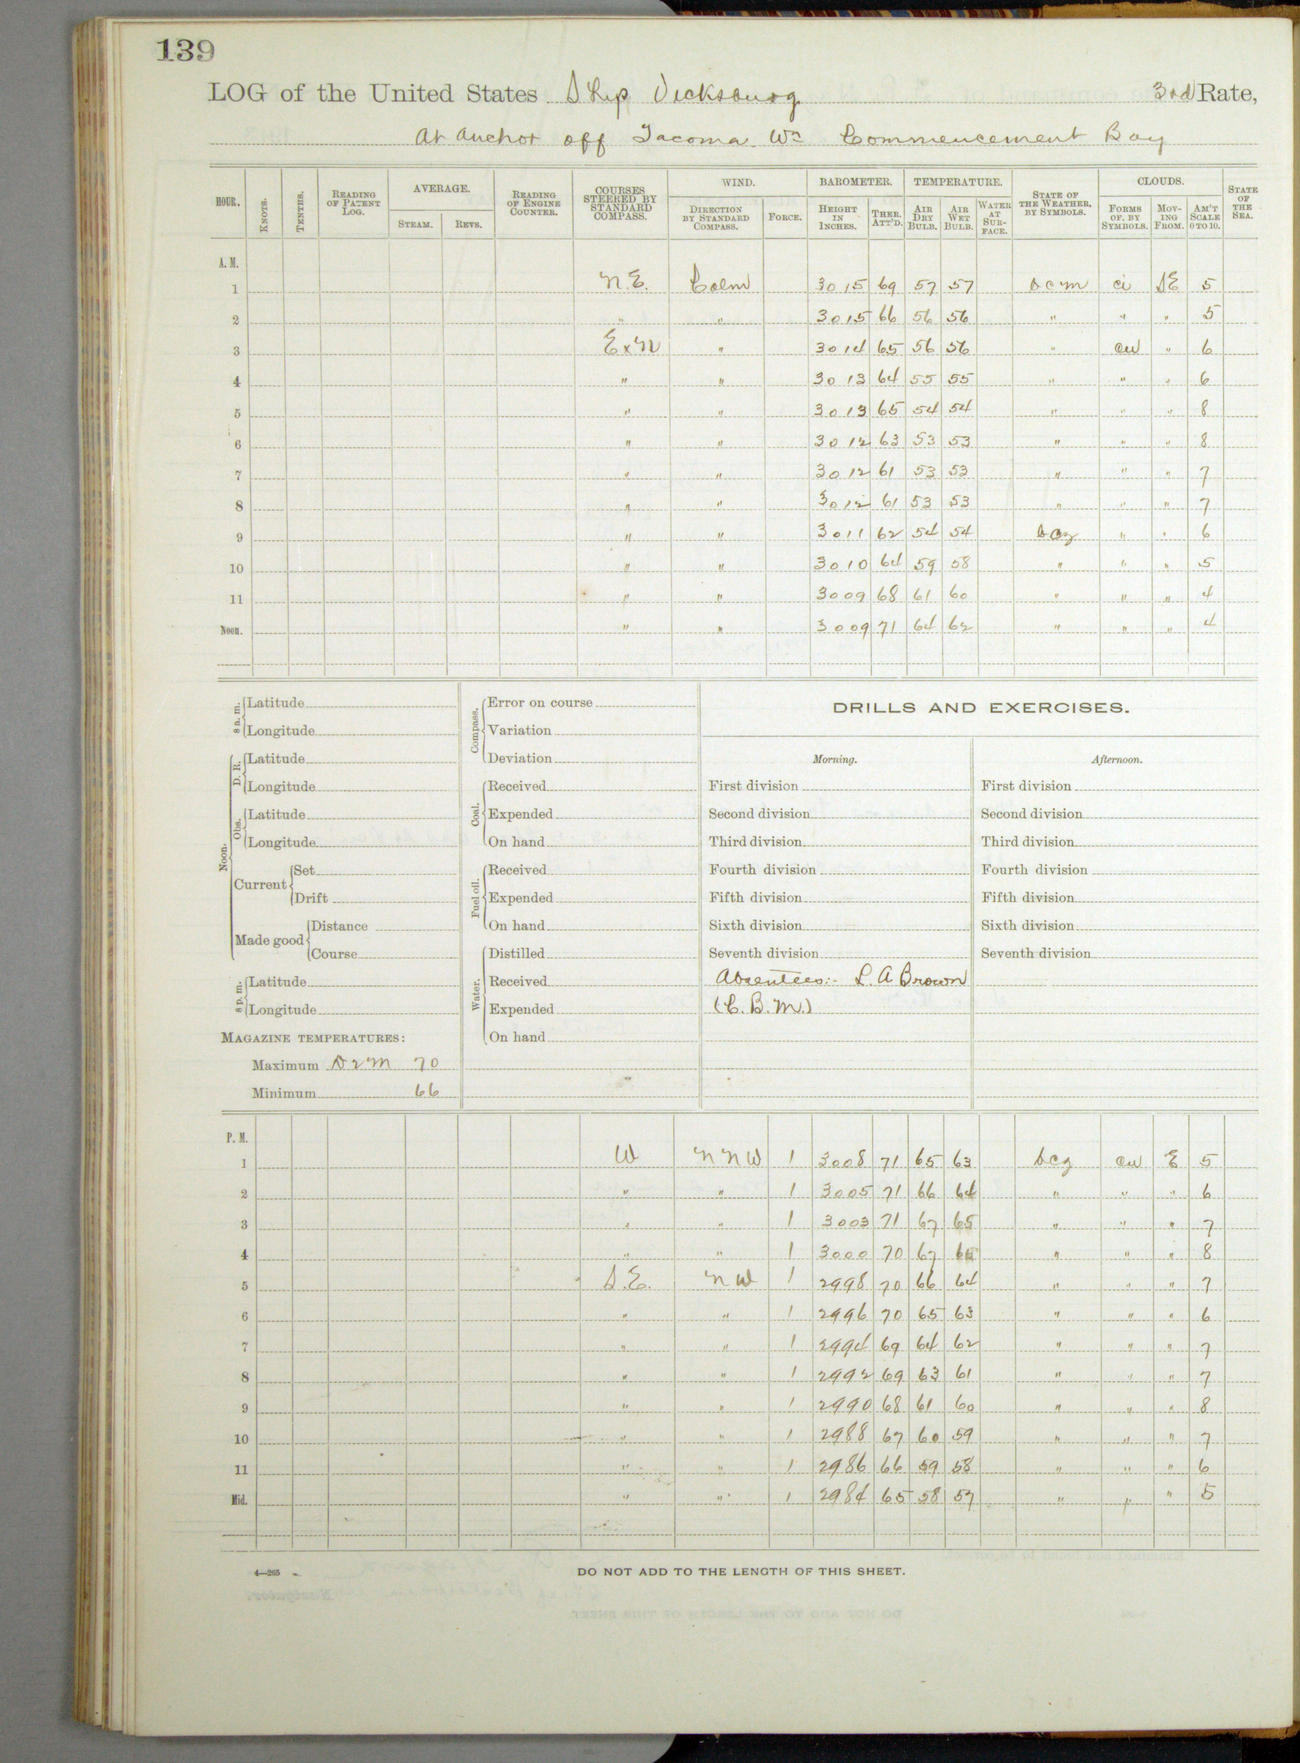 139
LOG of the United States Ship Vicksburg 3rd Rate,
At Anchor off Tacoma Wn Commencement Bay
HOUR. KNOTS. TENTHS. READING OF PATENT LOG. AVERAGE. STEAM. REVS. READING OF ENGINE COUNTER. COURSES STEERED BY STANDARD COMPASS. WIND. DIRECTION BY STANDARD COMPASS. FORCE. BAROMETER. HEIGHT IN INCHES. THER. ATT'D. TEMPERATURE. AIR DRY BULB. AIR WET BULB. WATER AT SURFACE. STATE OF THE WEATHER, BY SYMBOLS. CLOUDS. FORMS OF, BY SYMBOLS. MOVING FROM. AM'T SCALE 0 TO 10. STATE OF THE SEA.
A. M.
1 N.E. Calm 30 15 69 57 57 bcm ci SE 5
2 " " 30 15 66 56 56 " " " 5
3 ExN " 30 14 65 56 56 " cu " 6
4 " " 30 13 64 55 55 " " " 6
5 " " 30 13 65 54 54 " " " 8
6 " " 30 12 63 53 53 " " " 8
7 " " 30 12 61 53 53 " " " 7
8 " " 30 12 61 53 53 " " " 7
9 " " 30 11 62 54 54 bcz " " 6
10 " " 30 10 64 59 58 " " " 5
11 " " 30 09 68 61 60 " " " 4
Noon. " " 30 09 71 64 62 " " " 4
8 a. m. Latitude
Longitude
Noon. D. R. Latitude
Longitude
Obs. Latitude
Longitude
Current Set
Drift
Made good Distance
Course
8 p. m. Latitude
Longitude
MAGAZINE TEMPERATURES:
Maximum 70
Minimum 66
Compass. Error on course
Variation
Deviation
Coal. Received
Expended
On hand
Fuel oil. Received
Expended
On hand
Water. Distilled
Received
Expended
On hand
DRILLS AND EXERCISES.
Morning.
First division
Second division
Third division
Fourth division
Fifth division
Sixth division
Seventh division
Absentees:- L. A Brown
(C. B. M.)
Afternoon.
First division
Second division
Third division
Fourth division
Fifth division
Sixth division
Seventh division
P. M.
1 W NNW 1 30 08 71 65 63 bcz cu E 5
2 " " 1 30 05 71 66 64 " " " 6
3 " " 1 30 03 71 67 65 " " " 7
4 " " 1 30 00 70 67 " " " 8
5 S.E. NW 1 29 98 70 66 64 " " " 7
6 " " 1 29 96 70 65 63 " " " 6
7 " " 1 29 94 69 64 62 " " " 7
8 " " 1 29 92 69 63 61 " " " 7
9 " " 1 29 90 68 61 60 " " " 8
10 " " 1 29 88 67 60 59 " " " 7
11 " " 1 29 86 66 59 58 " " " 6
Mid. " " 1 29 84 65 58 57 " " " 5
4—265
DO NOT ADD TO THE LENGTH OF THIS SHEET.